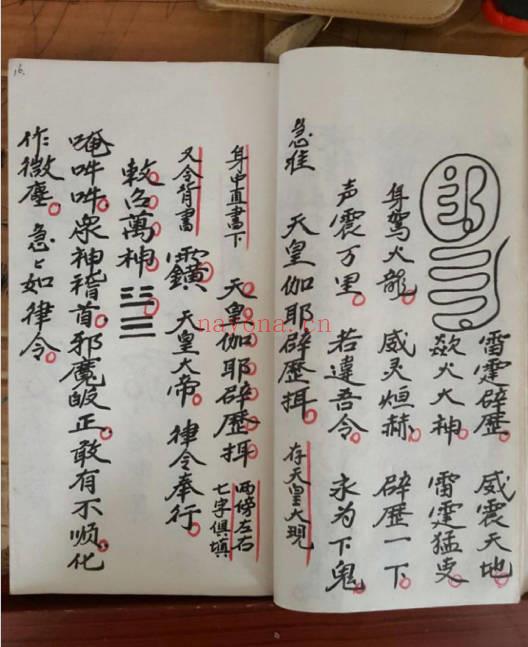 雷霆辟歷 威震天地
欻火大神 雷霆猛吏
身駕火龍 威灵烜赫 辟歷一下
声震万里 若違吾令 永为下鬼
急准 天皇伽耶辟歷揖 存天皇大現
身中直書下 天皇伽耶辟歷揖 西傍左右
七字俱填
又令背書 天皇大帝 律令奉行
敕召萬神
唵吽吽衆神稽首邪魔皈正敢有不顺化
作微塵 急々如律令
16.
nayona.cn